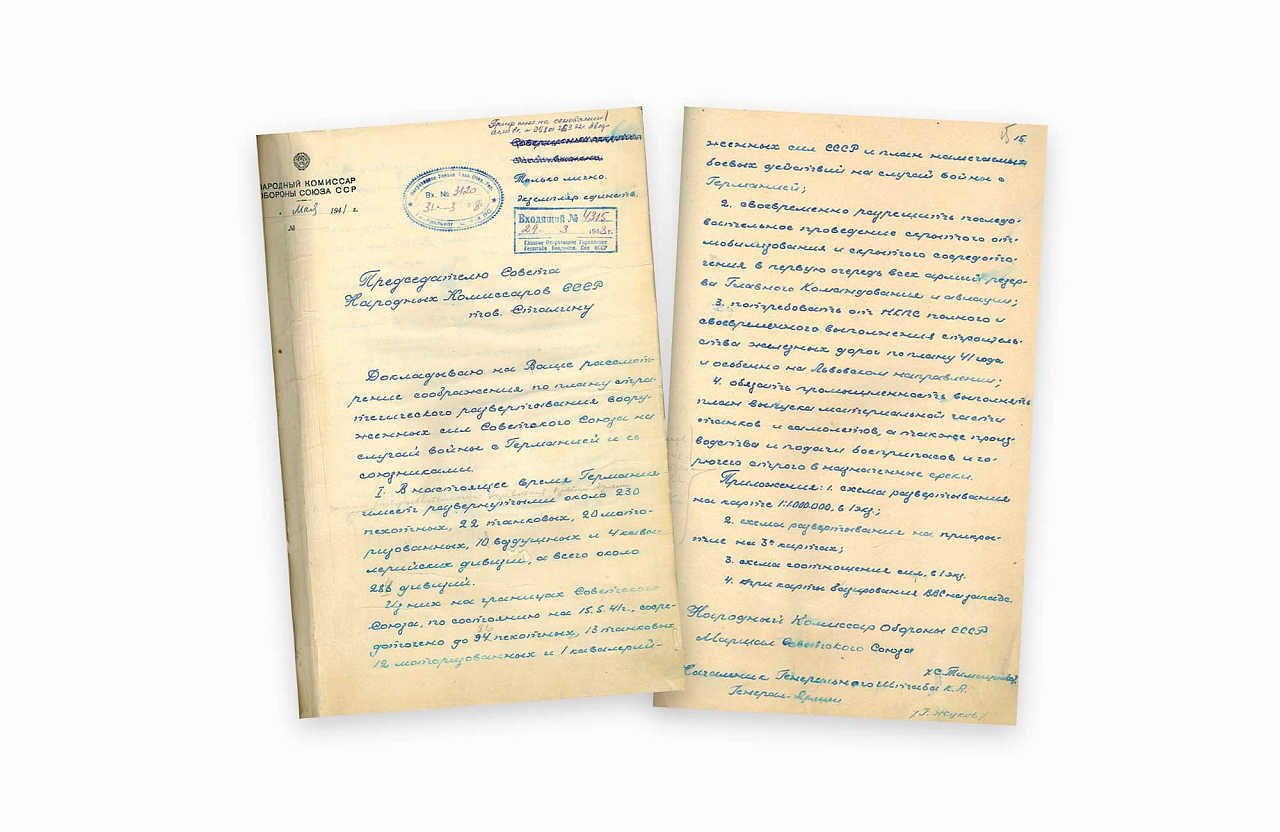 НАРОДНЫЙ КОМИССАР
ОБОРОНЫ СОЮЗА ССР
Мая 1941 г.
№
Гриф снят на основании
Совершенно секретно
Особой важности
Только лично.
экземпляр единств.
Вх. № 3120
31 - 3 8
Входящий № 4315
"29" 3 1948г.
Главное Оперативное Управление
Генштаба Вооружен. Сил СССР
Председателю Совета
Народных Комиссаров СССР
тов. Сталину
Докладываю на Ваше рассмот-
рение соображения по плану стра-
тегического развертывания воору-
женных сил Советского Союза на
случай войны с Германией и ее
союзниками.
I. В настоящее время Германия
имеет развернутыми около 230
пехотных, 22 танковых, 20 мото-
ризованных, 10 воздушных и 4 кава-
лерийских дивизий, а всего около
286 дивизий.
Из них на границах Советского
Союза, по состоянию на 15.5.41г., сосре-
доточено до 94 пехотных, 13 танковых,
12 моторизованных и 1 кавалерий-
15.
женных сил СССР и план намечаемых
боевых действий на случай войны с
Германией;
2. своевременно разрешить последо-
вательное проведение скрытого от-
мобилизования и скрытого сосредото-
чения в первую очередь всех армий резер-
ва Главного Командования и авиации;
3. потребовать от НКПС полного и
своевременного выполнения строитель-
ства железных дорог по плану 41 года
и особенно на Львовском направлении;
4. обязать промышленность выполнять
план выпуска материальной части
танков и самолетов, а также произ-
водства и подачи боеприпасов и го-
рючего строго в назначенные сроки.
Приложения: 1. схема развертывания
на карте 1:1.000.000, в 1 экз.;
2. схема развертывания на прикры-
тие на 3х картах;
3. схема соотношения сил, в 1 экз.
4. три карты базирования ВВС на западе.
Народный Комиссар Обороны СССР
Маршал Советского Союза
/С. Тимошенко/
Начальник Генерального Штаба К.А.
Генерал Армии
/Г. Жуков/